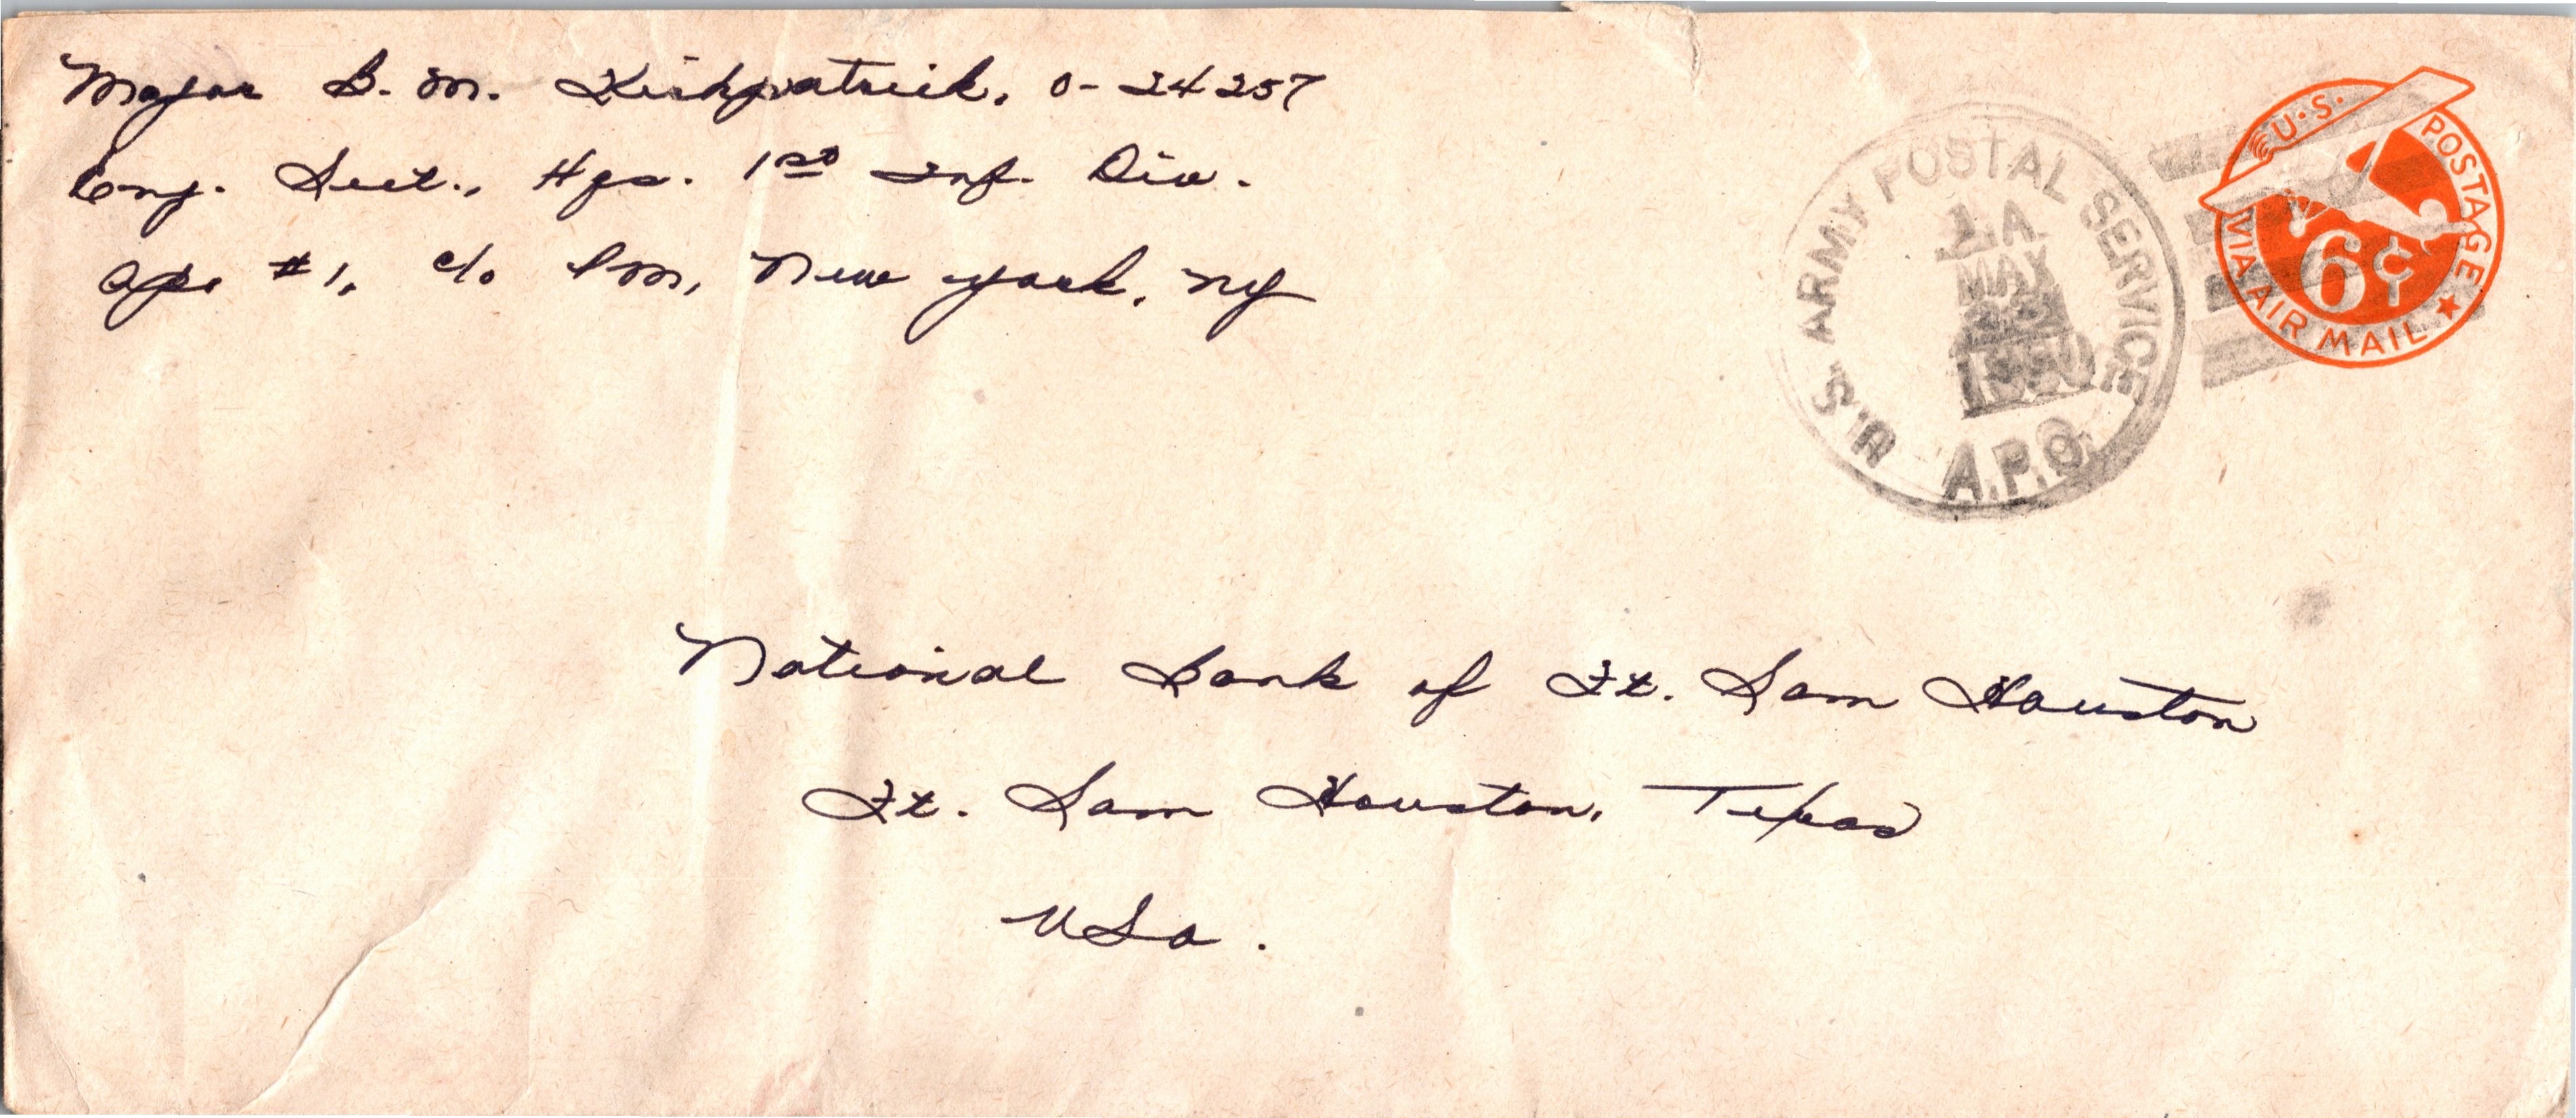 Major B. M. Kirkpatrick, O-24257
Eng. Sect., Hqs. 1st Inf. Div.
Apo #1, c/o PM, New York, NY
U.S. ARMY POSTAL SERVICE
A.P.O.
U.S. POSTAGE
6¢
VIA AIR MAIL
National Bank of Ft. Sam Houston
Ft. Sam Houston, Texas
USA.